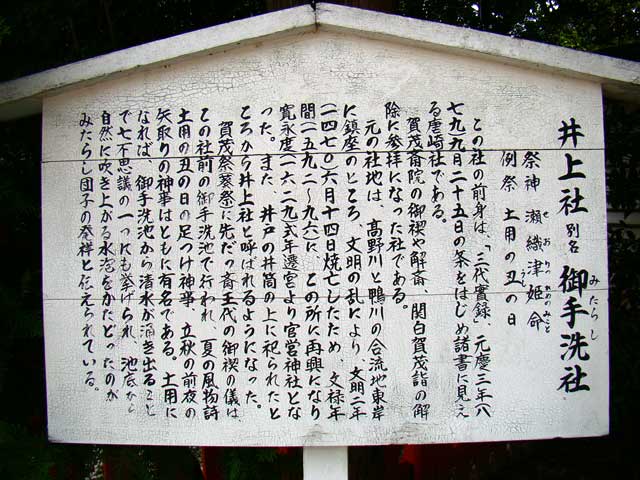 井上社 別名 御手洗社
みたらし
祭神 瀬織津姫命
せおりつひめのみこと
例祭 土用の丑の日
この社の前身は、「三代實録」、元慶三年八
七九九月二十五日の条をはじめ諸書に見え
る唐崎社である。
賀茂斎院の御禊や解斎、関白賀茂詣の解
除に参拝になった社である。
元の社地は、高野川と鴨川の合流地東岸
に鎮座のところ、文明の乱により、文明二年
(一四七〇)六月十四日焼亡したため、文禄年
間(一五九二~九六)に、この所に再興になり
寛永度(一六二九)式年遷宮より官営神社とな
った。また、井戸の井筒の上に祀られたと
ころから井上社と呼ばれるようになった。
賀茂祭(葵祭)に先だつ斎王代の御禊の儀は、
この社前の御手洗池で行われ、夏の風物詩
土用の丑の日の足つけ神事、立秋の前夜の
矢取りの神事はともに有名である。土用に
なれば、御手洗池から清水が湧き出ること
で七不思議の一つにも挙げられ、池底から
自然に吹き上がる水泡をかたどったのが
みたらし団子の発祥と伝えられている。